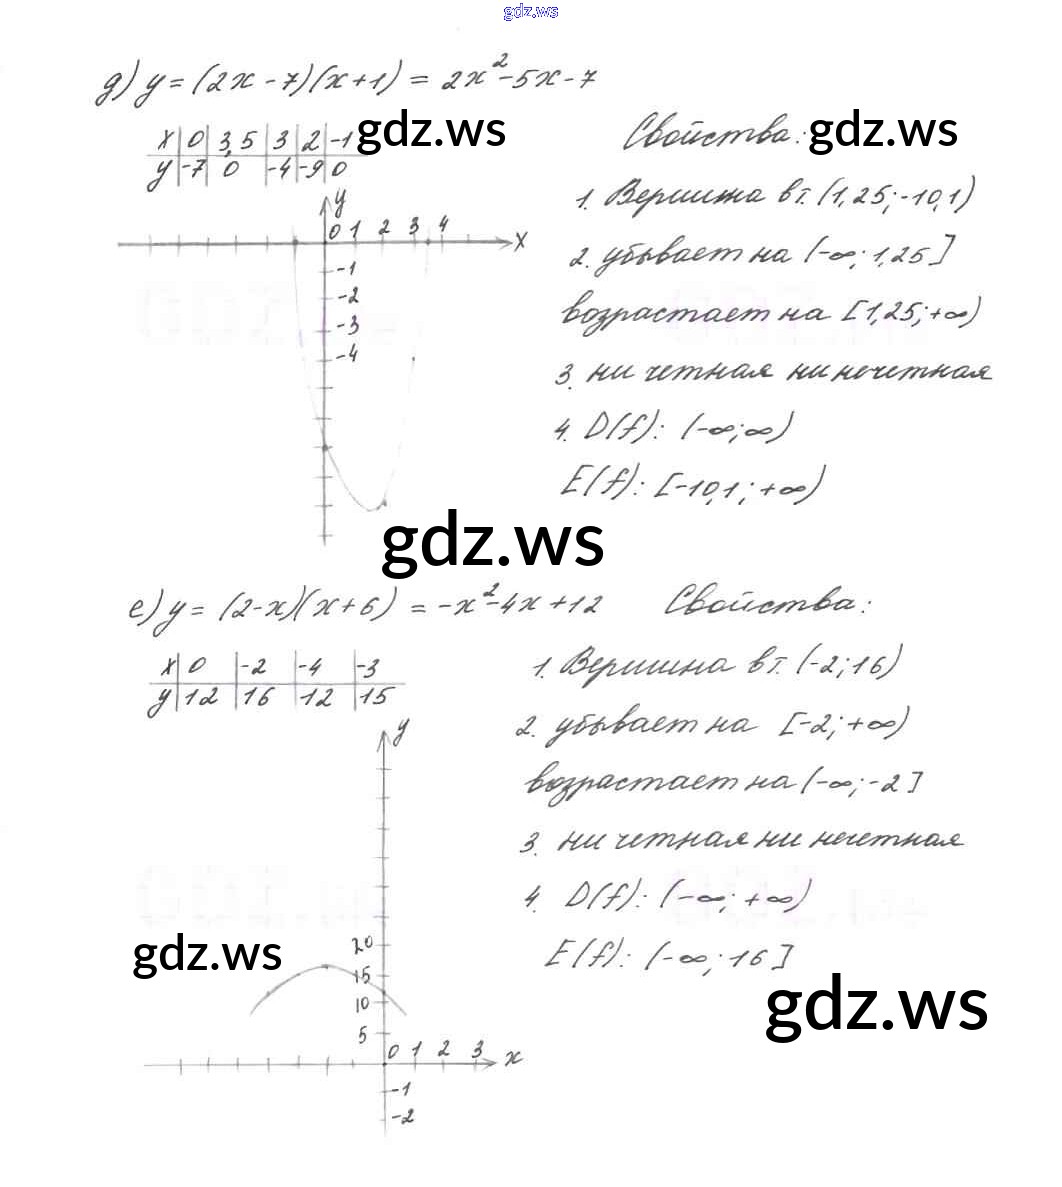 gdz.ws
д) y = (2x - 7)(x + 1) = 2x² - 5x - 7
x | 0 | 3,5 | 3 | 2 | -1
y | -7 | 0 | -4 | -9 | 0
gdz.ws
Свойства:
gdz.ws
1. Вершина в т. (1,25; -10,1)
2. убывает на (-∞; 1,25]
возрастает на [1,25; +∞)
3. ни четная ни нечетная
4. D(f): (-∞; ∞)
E(f): [-10,1; +∞)
y
0 1 2 3 4 x
-1
-2
-3
-4
gdz.ws
е) y = (2-x)(x+6) = -x² - 4x + 12
x | 0 | -2 | -4 | -3
y | 12 | 16 | 12 | 15
Свойства:
1. Вершина в т. (-2; 16)
2. убывает на [-2; +∞)
возрастает на (-∞; -2]
3. ни четная ни нечетная
4. D(f): (-∞; +∞)
E(f): (-∞; 16]
y
20
15
10
5
0 1 2 3 x
-1
-2
gdz.ws
gdz.ws